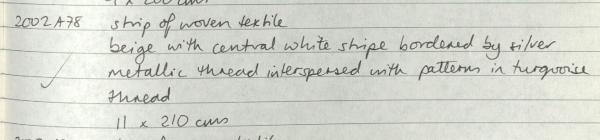 2002 A78 strip of woven textile
beige with central white stripe bordered by silver
metallic thread interspersed with patterns in turquoise
thread
11 x 210 cms